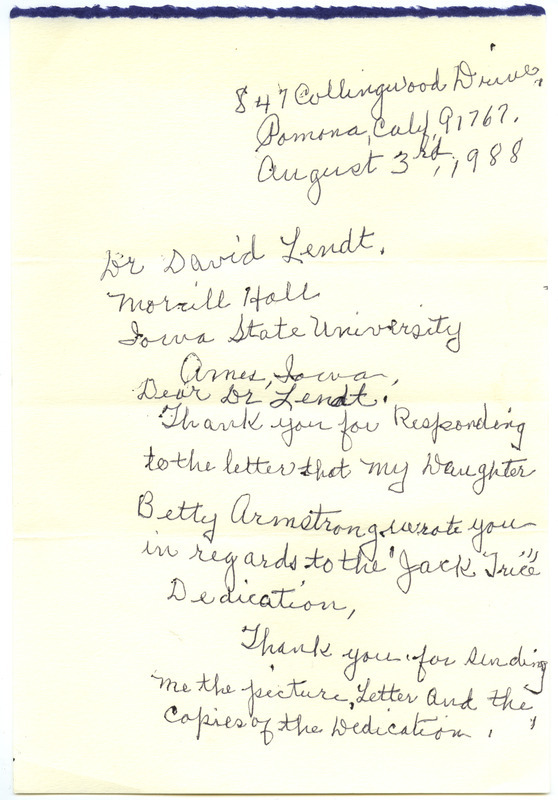 847 Collingwood Drive,
Pomona, Calif, 91767.
August 3rd, 1988
Dr David Lendt.
Morrill Hall
Iowa State University
Ames, Iowa,
Dear Dr Lendt.
Thank you for Responding
to the letter that my Daughter
Betty Armstrong wrote you
in regards to the "Jack Trice"
Dedication,
Thank you for sending
me the picture, Letter and the
copies of the Dedication.